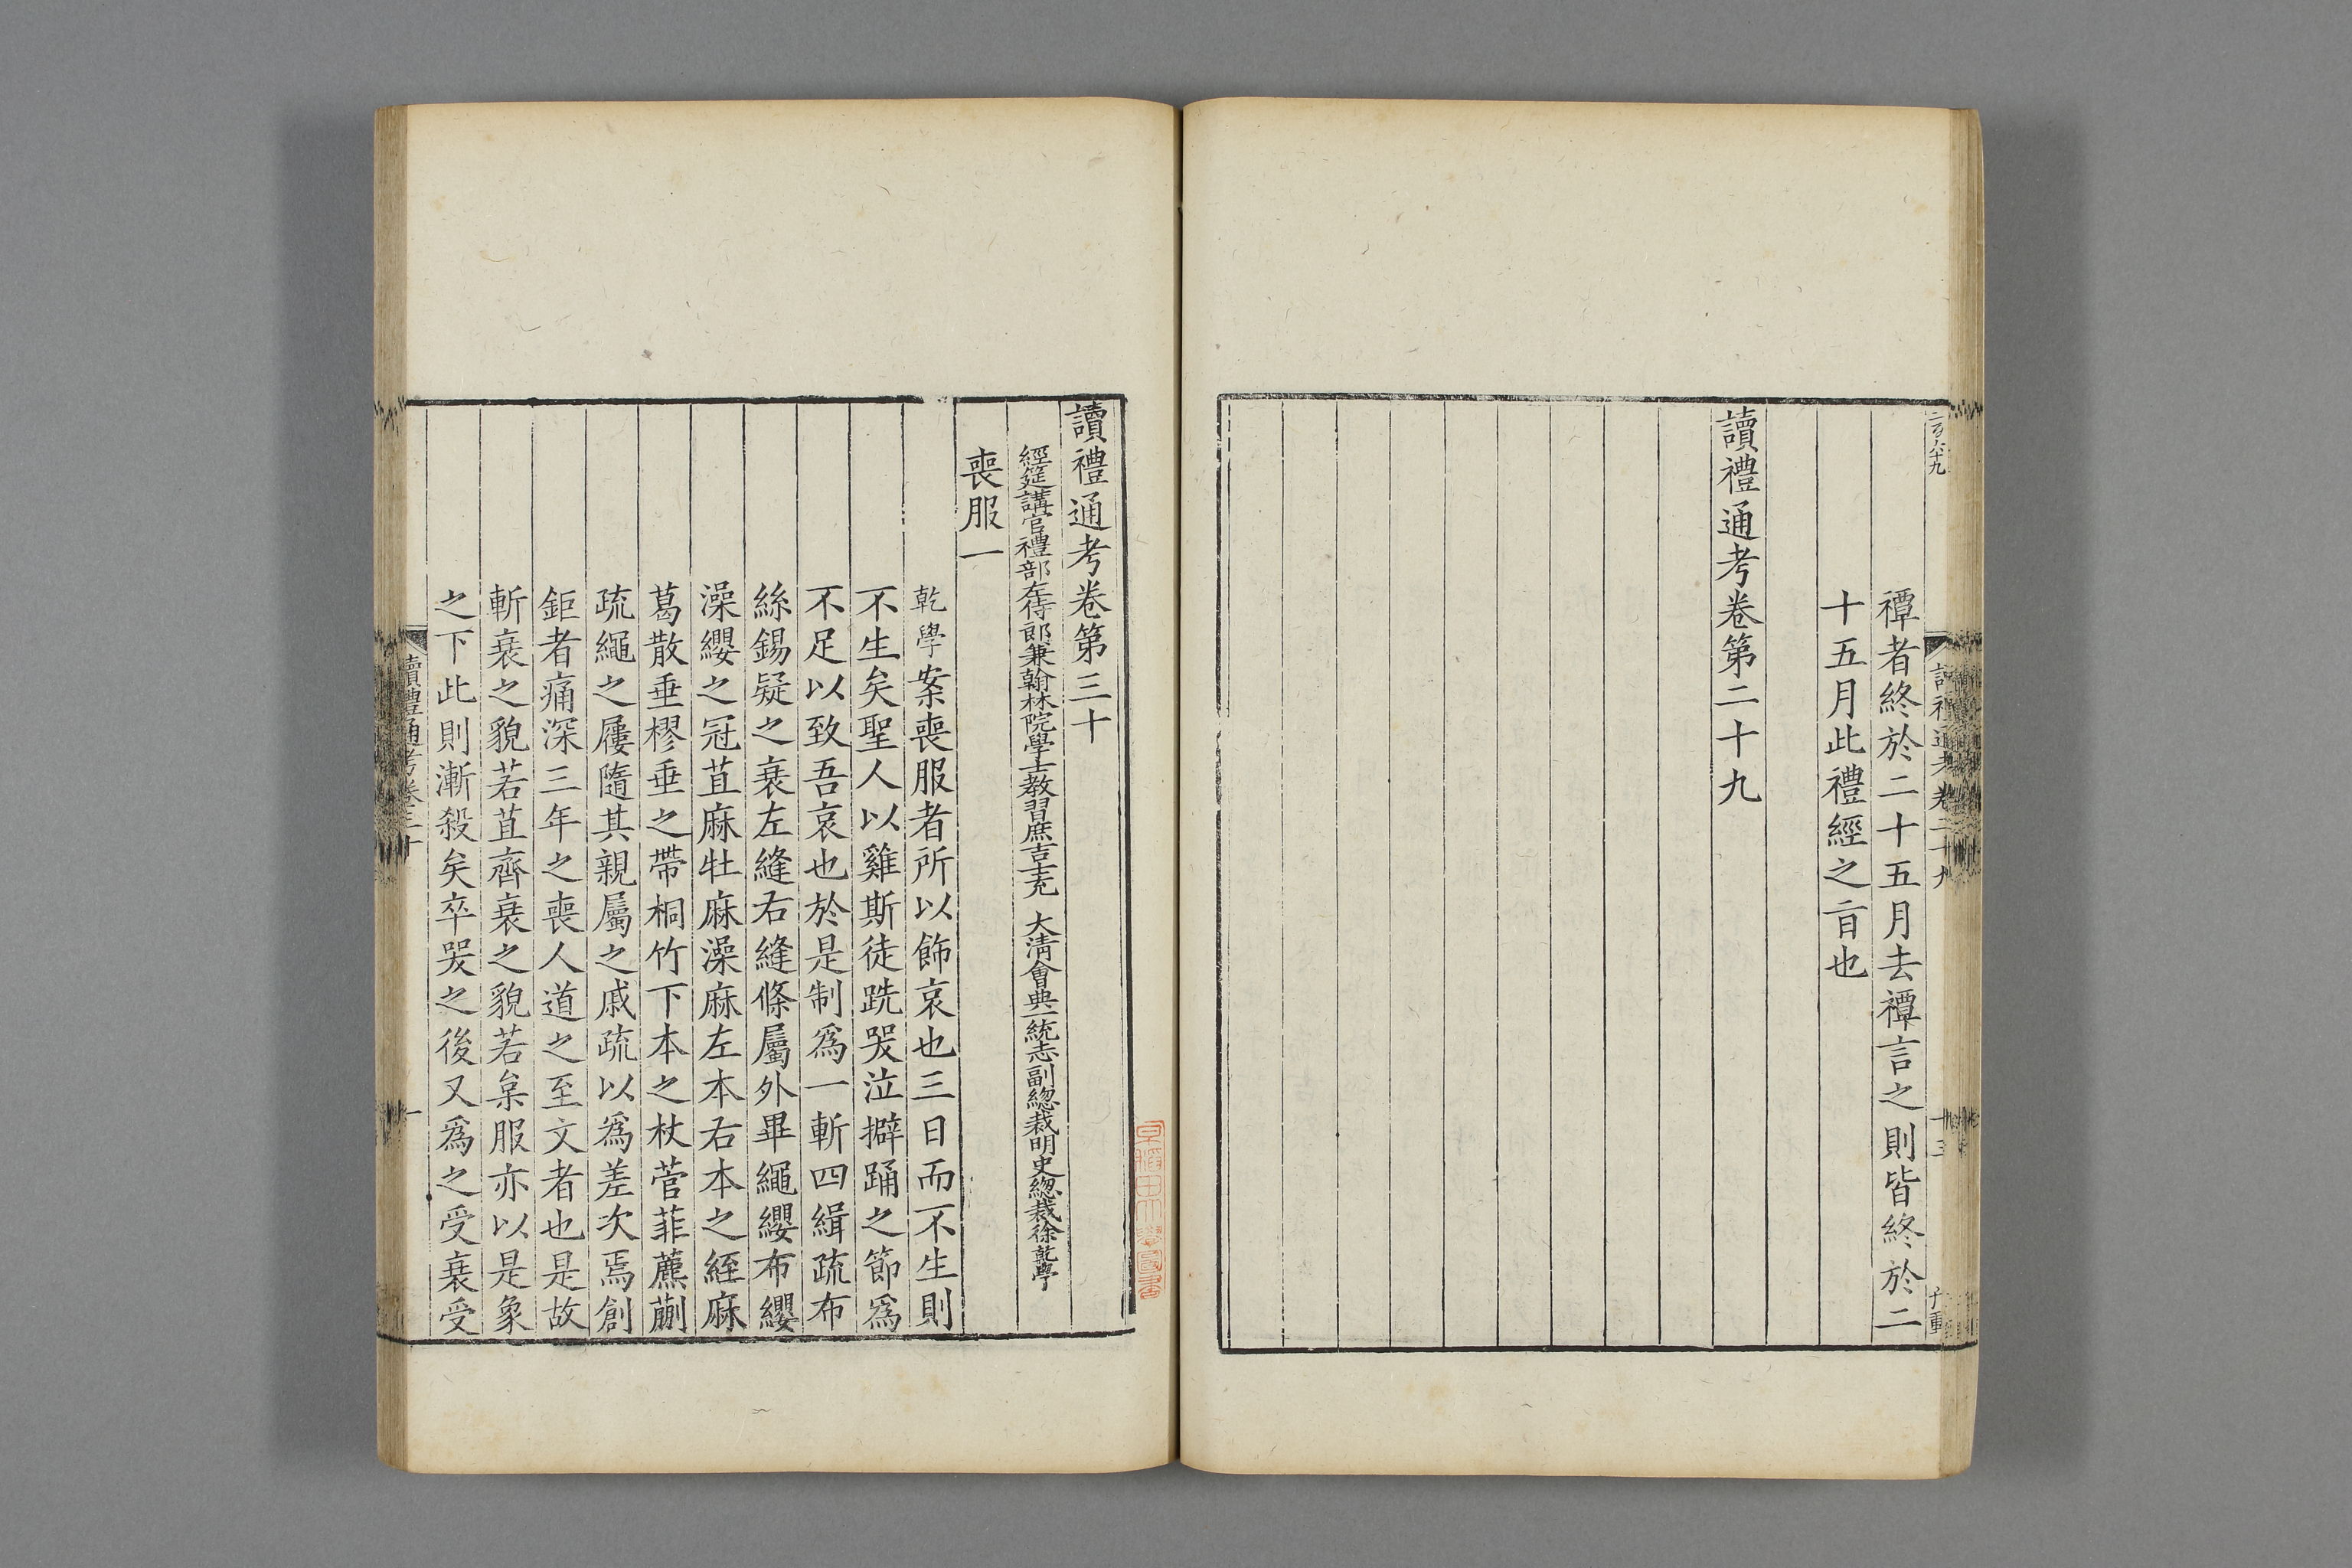 禫者終於二十五月去禫言之則皆終於二
十五月此禮經之㫖也
讀禮通考卷第二十九
讀禮通考卷第三十
經筵講官禮部左侍郎兼翰林院學士教習庶吉士充 大淸會典一統志副總裁明史總裁徐乾學
喪服一
乾學案喪服者所以飾哀也三日而不生則
不生矣聖人以雞斯徒跣哭泣擗踊之節爲
不足以致吾哀也於是制爲一斬四緝疏布
絲錫疑之衰左縫右縫條屬外畢繩纓布纓
澡纓之冠苴麻牡麻澡麻左本右本之絰麻
葛散垂樛垂之帶桐竹下本之杖菅菲藨蒯
疏繩之屨隨其親屬之戚疏以爲差次焉創
鉅者痛深三年之喪人道之至文者也是故
斬衰之貌若苴齊衰之貌若枲服亦以是象
之下此則漸殺矣卒哭之後又爲之受衰受
讀禮通考卷三十
一
早稻田大學圖書